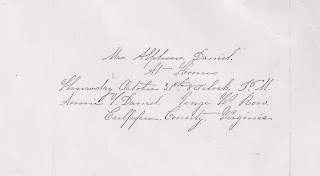 Mrs Alpheus Daniel.
At Home
Thursday October 31st 8 o'clock P. M.
Annie V. Daniel George W. Row.
Culpeper County Virginia